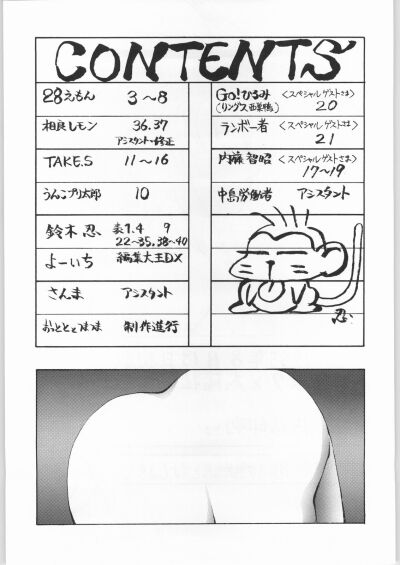 CONTENTS
28えもん 3～8
相良しモン 36.37
アシスタント・修正
TAKE.S 11～16
うんこプリ太郎 10
鈴木忍 表1.4 9
22～35.38～40
よーいち 編集大王DX
さんま アシスタント
おっととつまま 制作進行
Go!ひろみ 〈スペシャルゲストさま〉
(リングス西巣鴨) 20
ランボー者 〈スペシャルゲストさま〉
21
内藤智昭 〈スペシャルゲストさま〉
17～19
中島労働者 アシスタント
忍